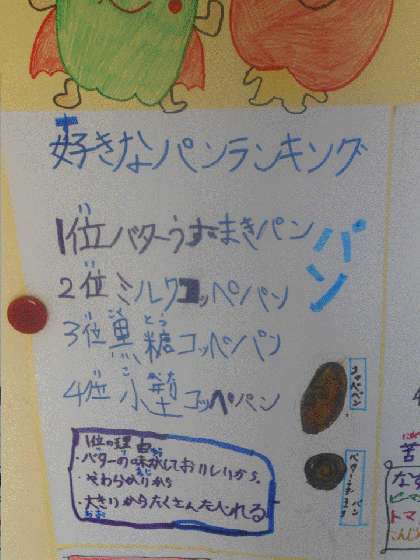 好きなパンランキング
1位バターうずまきパン
2位ミルクコッペパン
3位黒糖コッペパン
4位小型コッペパン
パン
コッペパン
1位の理由
・バターの味がしておいしいから。
・やわらかいから
・大きいからたくさん入れる
苦
なす
ピーマ
トマ